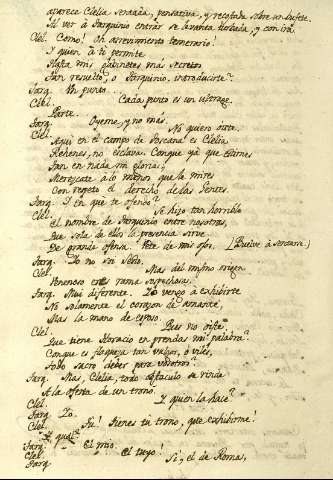 aparece Clelia sentada, pensativa, y recostada sobre un bufete.
Al ver à Tarquinio entrar se levanta turbada, y con ira
Clel. Como! Oh atrevimiento temerario!
Y quien à ti permite
Hasta mis gabinetes mas secretos
Tan resuelto, o Tarquinio, introducirte?
Tarq. Un punto...
Clel. Cada punto es un ultrage.
Parte.
Tarq. Oyeme, y no mas.
Clel. No quiero oirte.
Aqui en el campo de Toscana es Clelia
Rehenes, no esclava. Conque ya que estimes
Tan en nada mi gloria,
Merezcate à lo menos que la mires
Con respeto el derecho de las Gentes.
Tarq. I en què te ofendo?
Clel. Se hizo tan horrible
El nombre de Tarquinio entre nosotros,
Que sola de ellos la presencia sirve
De grande ofensa. Vete de mis ojos. (Vuelve à sentarse.)
Tarq. Yo no soi Sexto.
Clel. Mas del mismo origen
Venenoso eres rama sospechosa.
Tarq. Mui diferente. Yo vengo à exhibirte
No solamente el corazon de amante,
Mas la mano de esposo.
Clel. Pues no oiste
Que tiene Horacio en prendas mi palabra?
Conque es flaqueza tan vulgar, ò viles,
Todo sacro deber para vosotros?
Tarq. Mas, Clelia, todo obstaculo se rinde
A la oferta de un trono.
Clel. Y quien la hace?
Tarq. Yo.
Clel. Tu! tienes tu trono, que exhibirme!
Y qual?
Tarq. El mio.
Clel. El tuyo!
Tarq. Si, el de Roma,